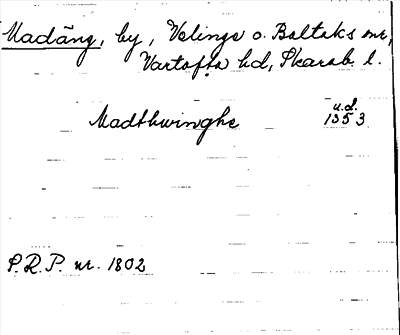 Madäng, by, Velinge o. Baltaks snr,
Vartofta hd, Skarab. l.
Madthwinghe u.d. 1353
P.R.P. nr. 1802